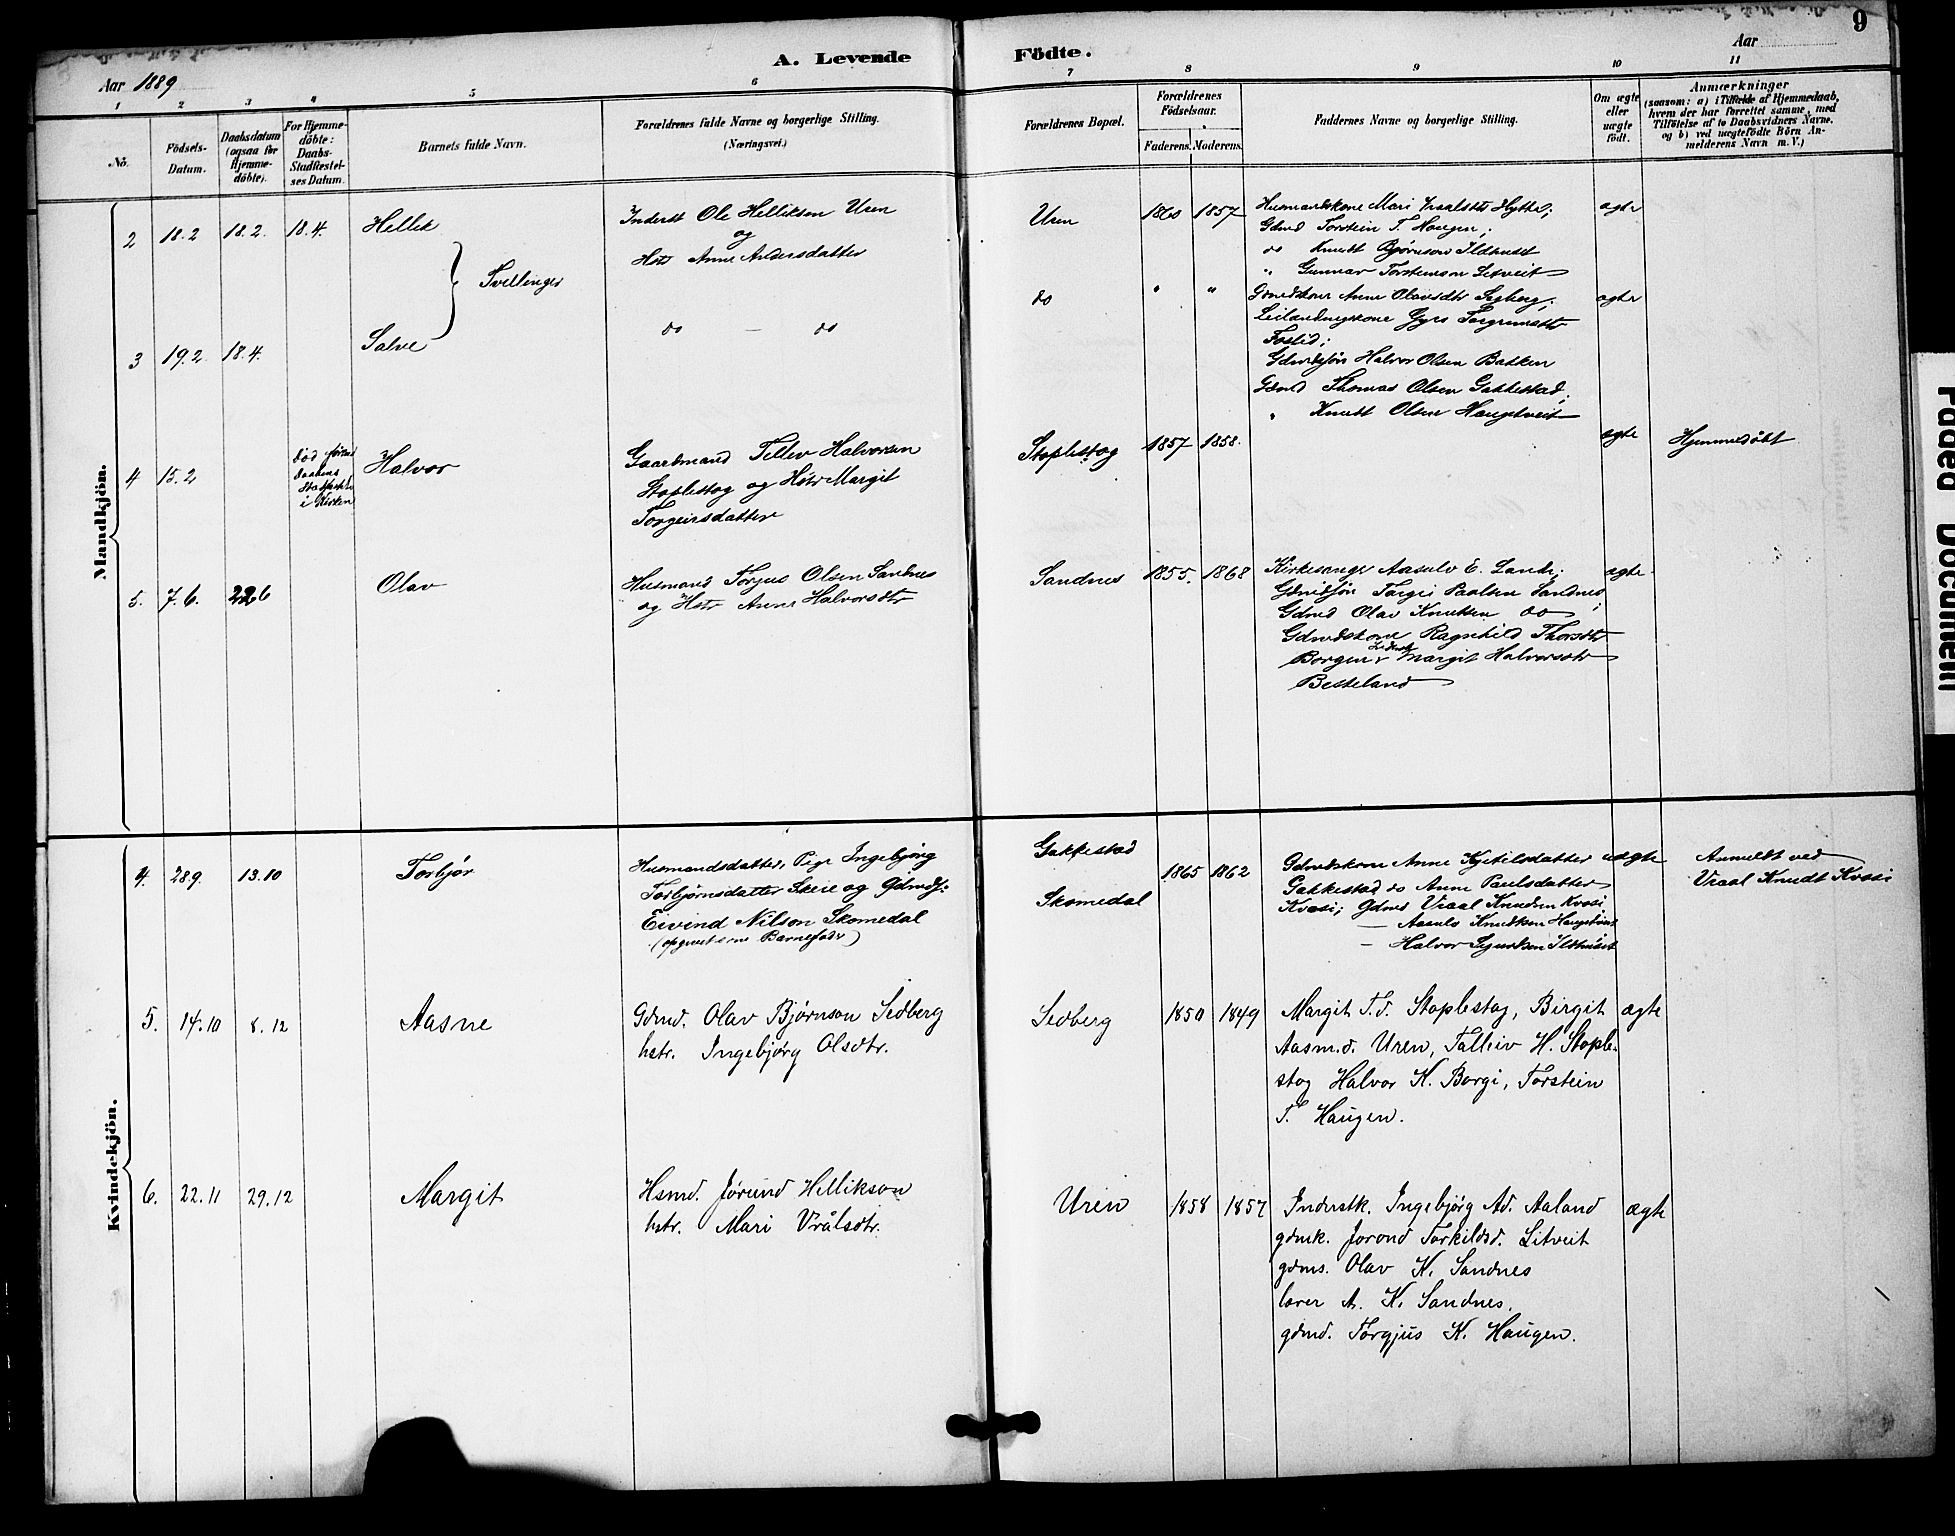 A. Levende Födte.
9
Aar 1889
Aar
1 2 3 4 5 6 7 8 9 10 11
No.
Födsels-Datum.
Daabsdatum (ogsaa for Hjemmedöbte).
For Hjemmedöbte: Daabs-Stadfæstelses Datum.
Barnets fulde Navn.
Forældrenes fulde Navne og borgerlige Stilling.
(Næringsvei.)
Forældrenes Bopæl.
Forældrenes Födselsaar.
Faderens. Moderens.
Faddernes Navne og borgerlige Stilling.
Om ægte eller uægte födt.
Anmærkninger
(saasom: a) i Tilfælde af Hjemmedaab,
hvem der har forrettet samme, med
Tilföielse af to Daabsvidners Navne.
og b) ved uægtefödte Börn Anmelderens Navn m. V.)
Mandkjön.
2 18.2 18.2. 18.4. Hellik
Inderst Ole Helliksen Uren
og
Hstr Anne Andersdatter
Uren 1860 1857
Husmandskone Mari Vraalsdtr Hytte;
Gdmd Torstein T. Haugen;
do Knudt Bjørnson Ildhuset
" Gunnar Torstenson Litveit
ægte
Tvillinger
3 19.2. 18.4. Salve
do — do
do " "
Gdmdskone Anne Olavsdtr Sedberg;
Leilændingskone Gyro Torgrimsdtr
Foslid;
Gdmdsøn Halvor Olsen Bakken
Gdmd Thomas Olsen Gakkestad;
" Knudt Olsen Haugtveit
ægte
4 15.2
død förend
Daabens
Stadfæstelse
i Kirken
Halvor
Gaardmand Tellev Halvorsen
Stoplestog og Hstr Margit
Torgeirsdatter
Stoplestog 1857 1858.
ægte Hjemmedøbt
5. 7.6. 22 6 Olav
Husmand Torjus Olsen Sandnes
og Hstr Anne Halvorsdtr
Sandnes 1855. 1868
Kirkesanger Aasulv E. Lande;
Gdmdsøn Targei Paalsen Sandnes;
Gdmd Olav Knutsen do
Gdmdskone Ragnhild Thorsdtr
Borgen, Margit Halvorsdtr
Besteland
ægte.
Kvindekjön.
4. 28 9. 13.10 Torbjør
Husmandsdatter, Pige Ingebjørg
Torbjørnsdatter Skeie og Gdmds:
Eivind Nilson Skomedal
(opgivet som Barnefader)
Gakkestad
Skomedal
1865 1862
Gdmdskone Anne Kjetilsdatter
Gakkestad do Anne Paulsdatter
Kvasi; Gdmd Vraal Knudsen Kvasi
— Aasulv Knudsen Haugtveit
— Halvor Sjurdsen Ildhuset
uægte
Anmeldt ved
Vraal Knudt Kvasi
5. 14.10 8.12 Aasne
Gdmd. Olav Bjørnson Sedberg
hstr. Ingebjørg Olsdtr.
Sedberg 1850 1849
Margit T.d. Stoplestog, Birgit
Aasm.d. Uren, Talleiv H. Stople-
stog Halvor K. Borgi, Torstein
T. Haugen.
ægte
6. 22.11 29.12 Margit
Hsmd. Jørund Hellikson
hstr. Mari Vrålsdtr.
Uren 1858 1857
Inderstk. Ingebjørg Ad. Aaland
gdmk. Jorond Torkildsd. Litveit
gdms. Olav K. Sandnes
lærer A. K. Sandnes.
gdmd. Torgjus K. Haugen.
ægte
Faded Document